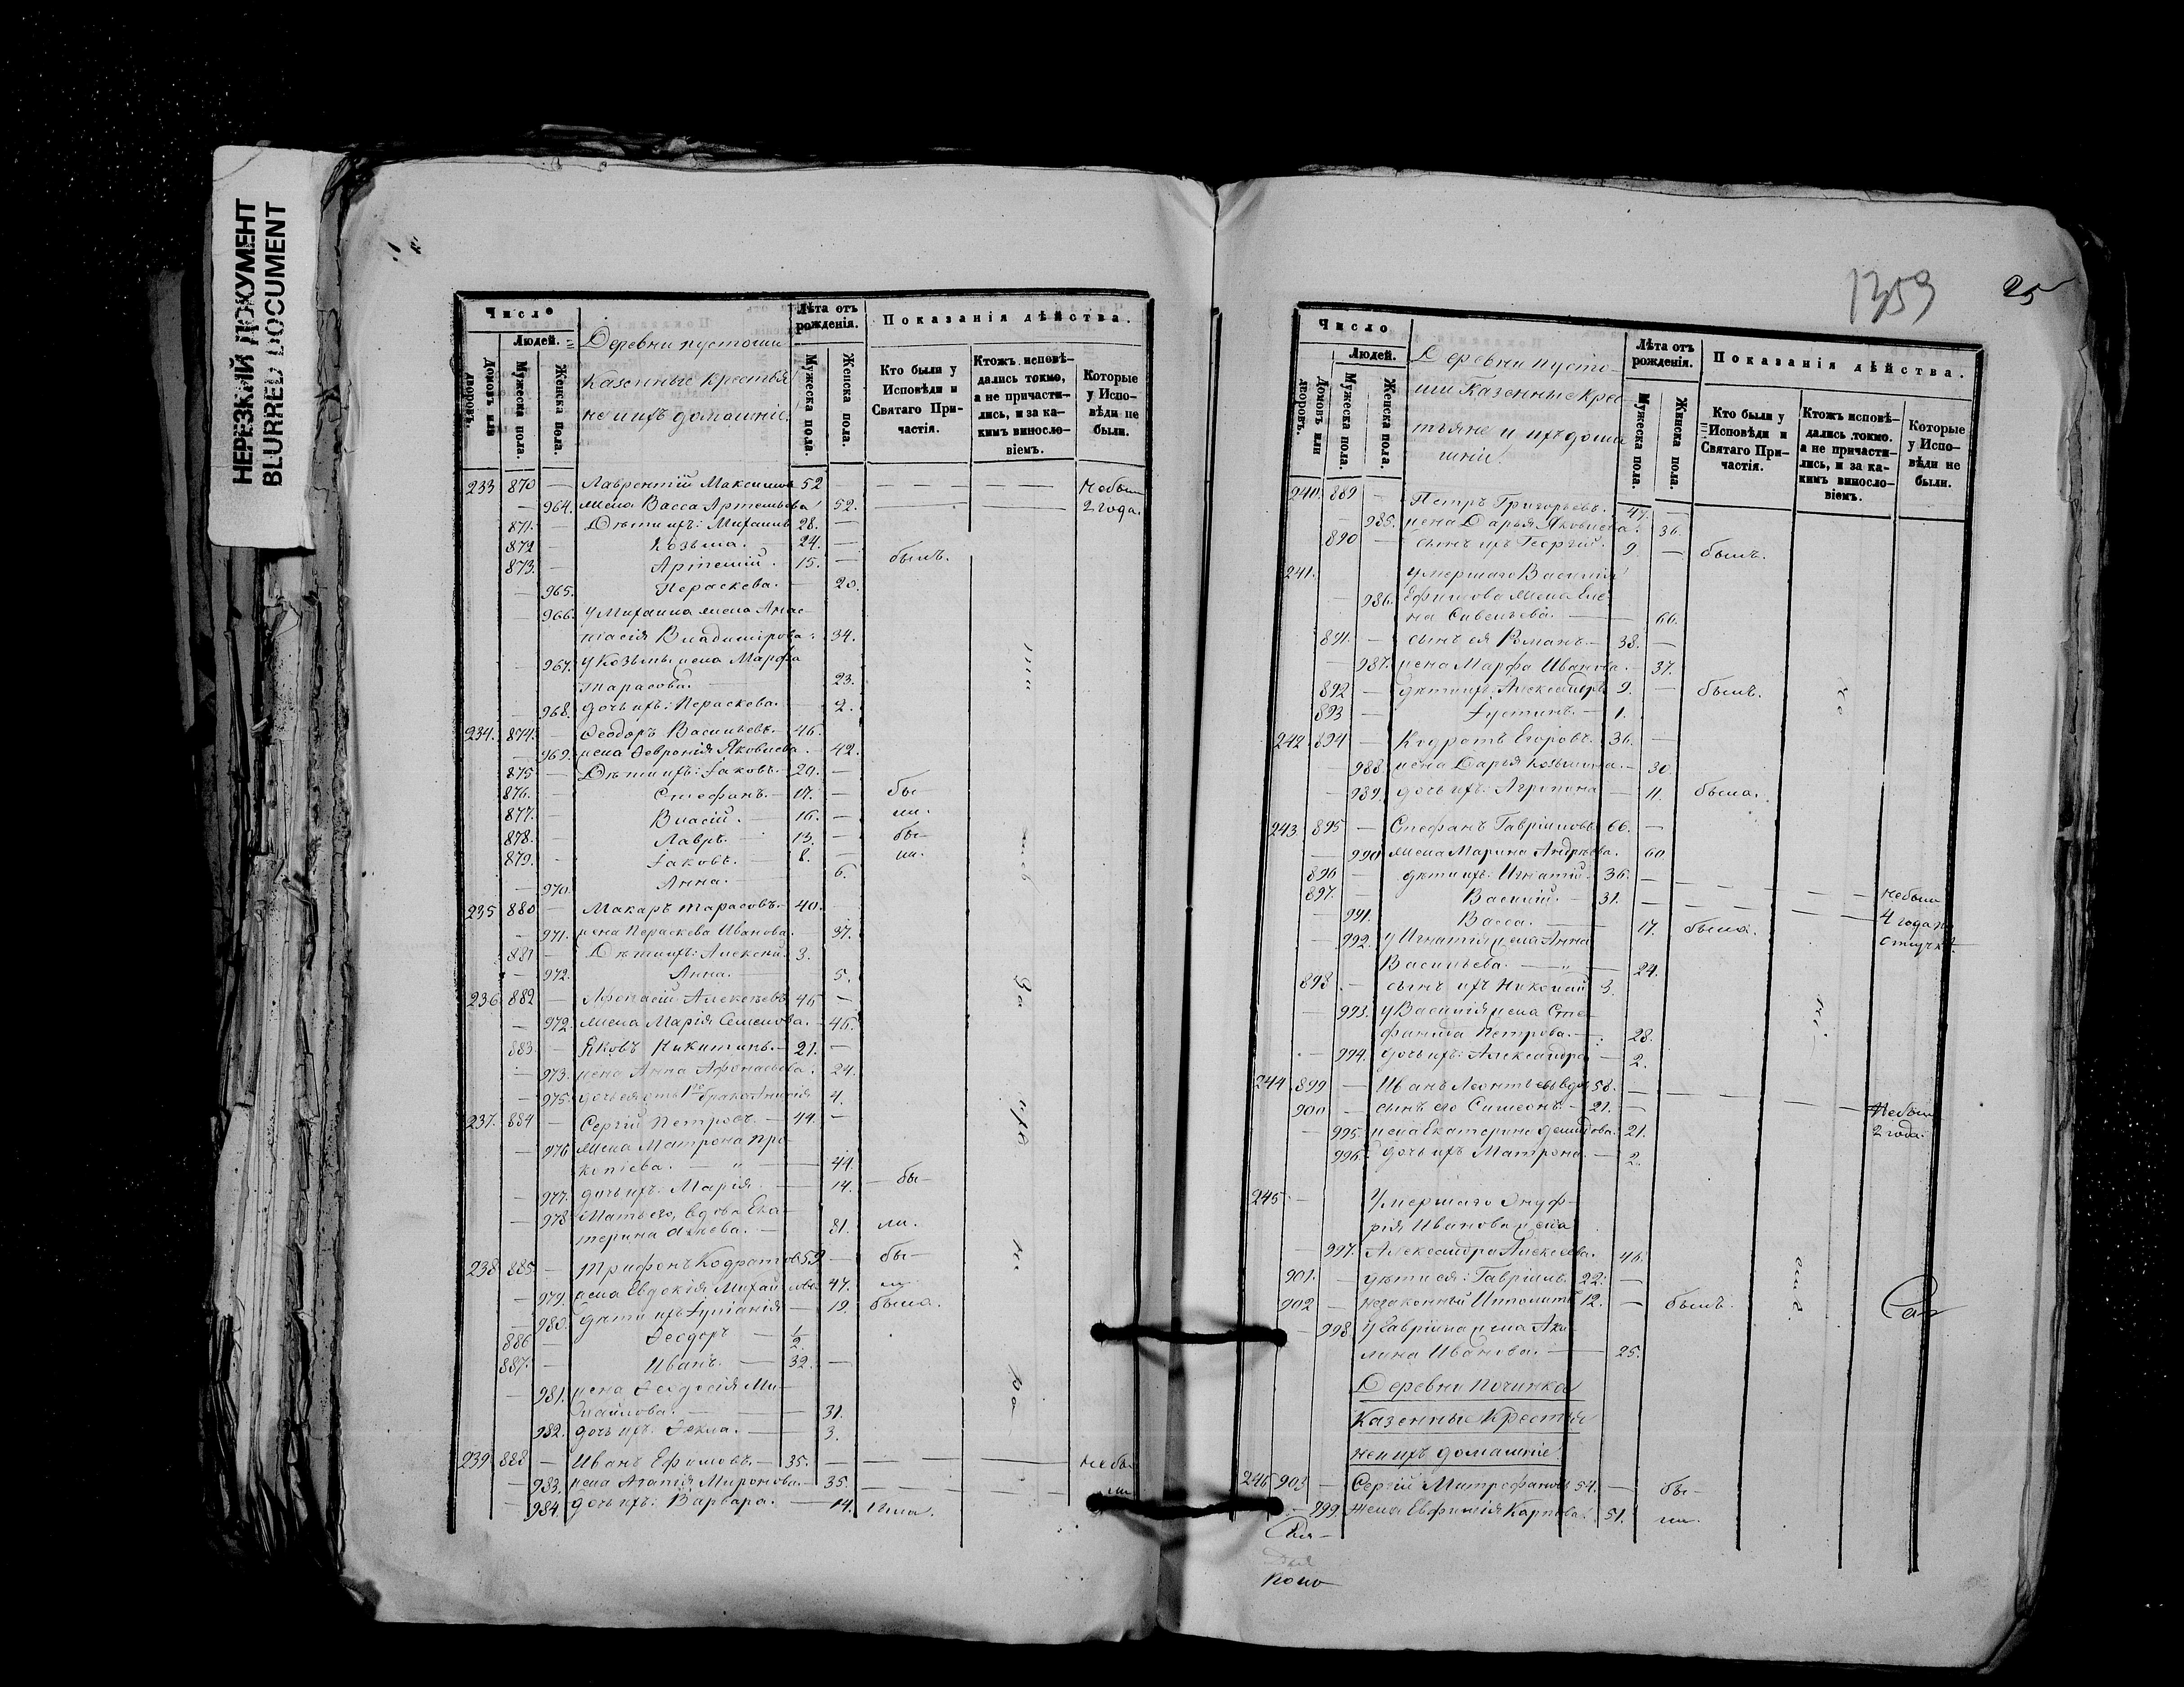 НЕРЕЗКИЙ ДОКУМЕНТ
BLURRED DOCUMENT
Число
Людей.
Домовъ или дворовъ.
Мужеска пола.
Женска пола.
Деревни пустоши
Казенные крестья
не и ихъ домашніе.
Лѣта отъ рожденія.
Мужеска пола.
Женска пола.
Показанія дѣйства.
Кто были у Исповѣди и Святаго Причастія.
Ктожъ исповѣдались токмо, а не причастились, и за какимъ винословіемъ.
Которые у Исповѣди не были.
233 870 — Лаврентій Максимов 52 — — — — небыли
— 964. жена Васса Артемьева 52. — 2 года.
871. — Дѣти ихъ: Михаилъ 28. —
872 — Козьма. 24. —
873. — Артемій. 15. — былъ.
— 965. Пераскева. — 20.
— 966. У Михаила жена Анас
тасія Владимірова. 34.
— 967. У Козьмы жена Марфа
Тарасова. 23.
— 968. дочь ихъ: Пераскева. — 2.
234. 874. — Ѳеодоръ Васильевъ. 46.
— 969. жена Февронія Яковлева. 42.
875 — Дѣти ихъ: Іаковъ. — 20. —
876. — Стефанъ. — 17. — бы-
877. — Власій. — 16. — ли.
878. — Лавръ. — 13. — бы-
879. — Іаковъ. — 8. — ли.
— 970. Анна. — 6.
235 880 — Макаръ Тарасовъ. — 40. —
— 971. жена Пераскева Иванова. 37.
881 — Дѣти ихъ: Алексѣй. 3.
— 972. Анна. 5.
236. 882 — Афонасій Алексѣевъ 46 —
— 972. жена Марія Семенова. — 46.
883 — Яковъ Никитинъ. — 21. —
— 973. жена Анна Афонасьева. 24.
— 975. дочь ея отъ 1го брака 4.
237. 884 — Сергій Петровъ. — 44. —
— 976 жена Матрона Про
копіева. — " — 44.
— 977. дочь ихъ: Марія. — 14. — бы-
— 978 Мать его, вдова Ека-
терина 81. ли.
238 885 — Трифонъ Кодратов 59 — бы-
— 979. жена Евдокія Михайлова 47. ли.
— 980. Дѣти ихъ Іуліанія — 19. была.
886 — Ѳеодоръ — 1/2
887. — Иванъ. — 32. —
— 981. жена Ѳеодосія Ми-
хайлова. — 31.
982. дочь ихъ. Ѳекла. — 3.
239. 888 — Иванъ Ефимовъ. — 35. — — — небы-
— 983. жена Агапія Миронова. — 35. — — — ли
— 984. дочь ихъ: Варвара. — 14. была.
1359
25
Число
Людей.
Домовъ или дворовъ.
Мужеска пола.
Женска пола.
Деревни пусто-
ши Казенные Крес
тьяне и ихъ дома
шніе.
Лѣта отъ рожденія.
Мужеска пола.
Жинска пола.
Показанія дѣйства.
Кто были у Исповѣди и Святаго Причастія.
Ктожъ исповѣдались токмо. а не причастились, и за какимъ винословіемъ.
Которые у Исповѣди не были.
240. 889 — Петръ Григорьевъ. 47. —
— 985. жена Дарья Яковлева. 36.
890 — сынъ ихъ Георгій. 9. — былъ.
241. Умершаго Василія
— 986. Ефимова жена Еле
на Савельева. — 66.
891. — сынъ ея Романъ. — 38. —
— 987. жена Марфа Иванова. — 37.
892 — дѣти ихъ: Александръ 9. — былъ.
893 — Іустинъ. — 1.
242. 894 — Кодратъ Егоровъ. 36. —
— 988. жена Дарья Козьмина. — 30.
— 989. дочь ихъ: Агрипина — 11. была.
243. 895 — Стефанъ Гавріиловъ 66. —
— 990. жена Марина Андрѣева. 60.
896 — дѣти ихъ: Игнатій. 36. — — — небыли
897. — Василій. — 31. — — — 4 года по
— 991. Васса. — 17. была. отлучкѣ
— 992. У Игнатія жена Анна
Васильева. — " — 24.
898 — сынъ ихъ Николай 3.
— 993. У Василія жена Сте-
фанида Петрова. — 28.
— 994. дочь ихъ: Александра — 2.
244 899 — Иванъ Леонтьевъ вдов 58. — — —
900 — сынъ его Симеонъ. — 21. — — — Небыли
— 995. жена Екатерина Демидова. 21. 2 года.
— 996. дочь ихъ Матрона. — 2.
245 — Умершаго Онуф-
рія Иванова жена
— 997. Александра Алексѣева. 46.
901. — дѣти ея: Гавріилъ. 22. —
902 — незаконный Ипполитъ 12. — былъ.
— 998 У Гавріила жена Аку-
лина Иванова. — 25.
Деревни Починка
Казенные Крестья
не и ихъ домашніе.
246 903 — Сергій Митрофановъ 54. — бы-
— 999. Жена Евфимія Карпова. 51. ли.